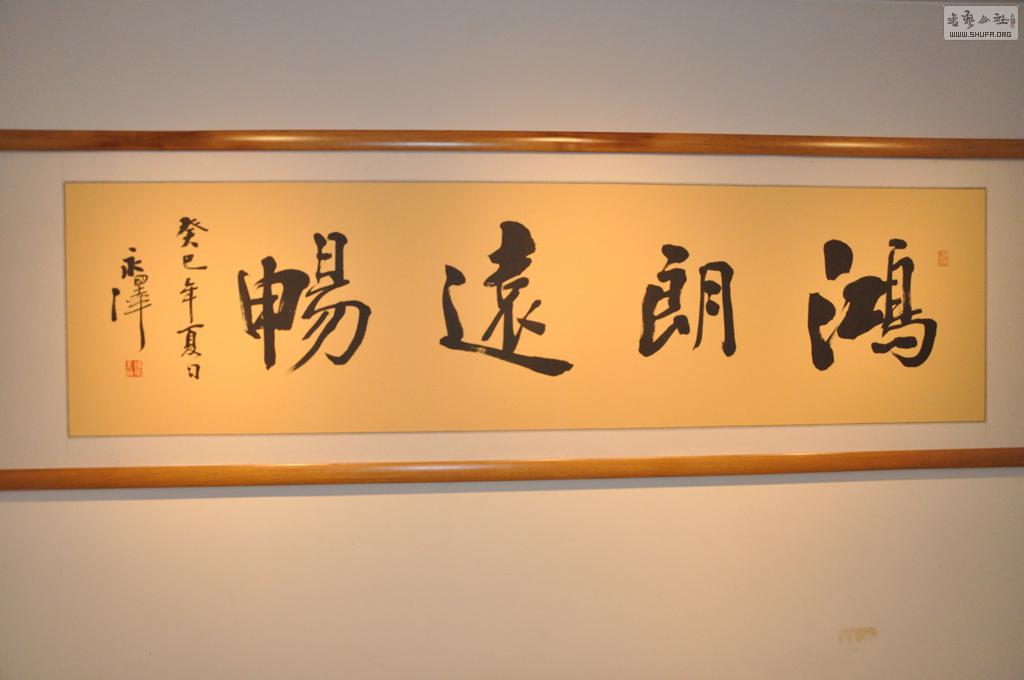 鴻朗遠暢
癸巳年夏日
永澤
書藝公社
WWW.SHUFA.ORG